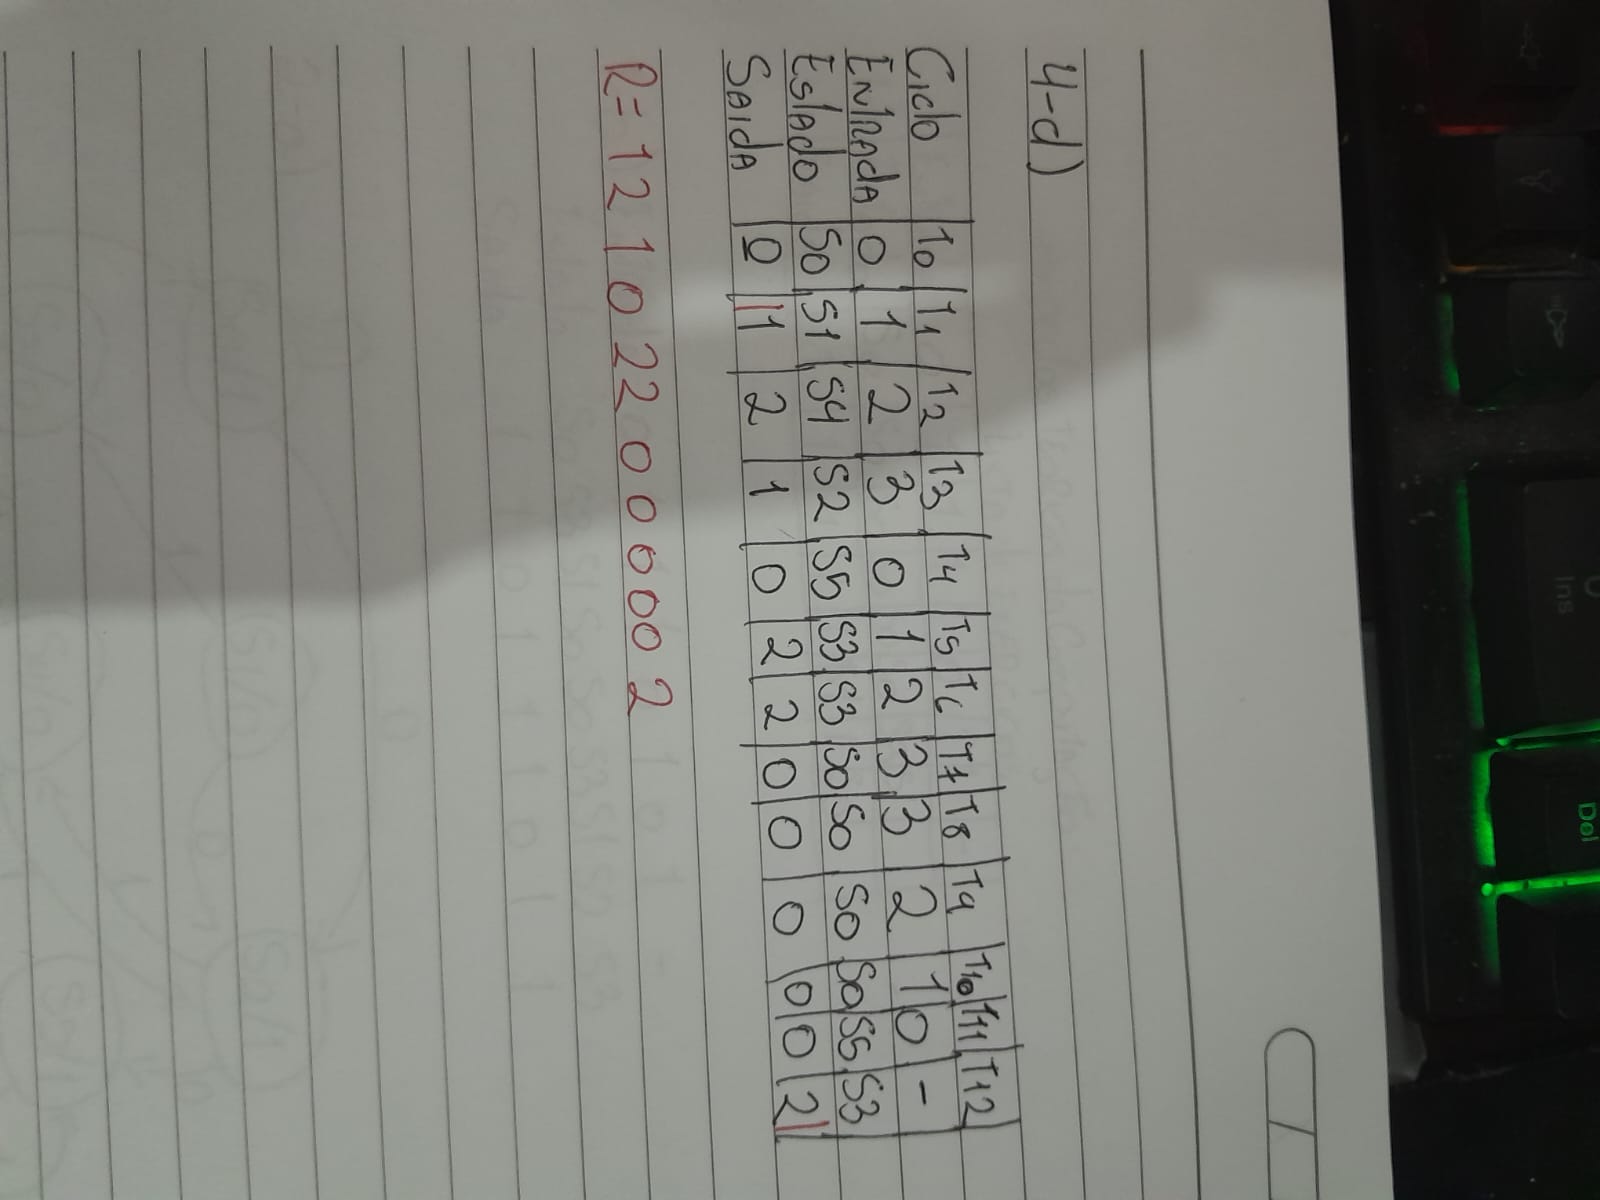 4-d)
Ciclo T0 T1 T2 T3 T4 T5 T6 T7 T8 T9 T10 T11 T12
Entrada 0 1 2 3 0 1 2 3 3 2 1 0 -
Estado S0 S1 S4 S2 S5 S3 S3 S0 S0 S0 S0 S5 S3
Saida 0 1 2 1 0 2 2 0 0 0 0 0 2
R= 1 2 1 0 2 2 0 0 0 0 0 2
Ins
Del